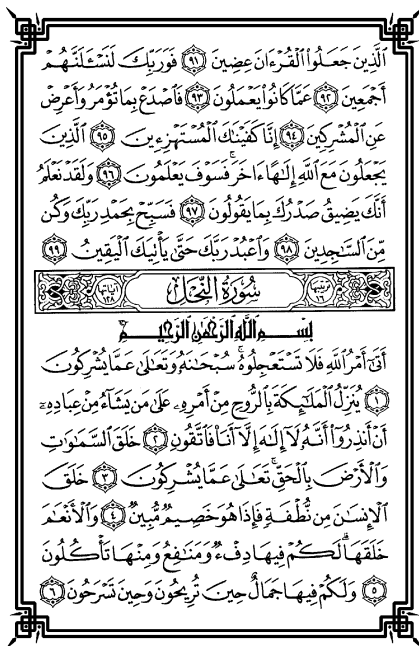 الَّذِينَ جَعَلُوا۟ الْقُرْءَانَ عِضِينَ ﴿٩١﴾ فَوَرَبِّكَ لَنَسْـَٔلَنَّهُمْ
أَجْمَعِينَ ﴿٩٢﴾ عَمَّا كَانُوا۟ يَعْمَلُونَ ﴿٩٣﴾ فَاصْدَعْ بِمَا تُؤْمَرُ وَأَعْرِضْ
عَنِ الْمُشْرِكِينَ ﴿٩٤﴾ إِنَّا كَفَيْنَاكَ الْمُسْتَهْزِءِينَ ﴿٩٥﴾ الَّذِينَ
يَجْعَلُونَ مَعَ اللَّهِ إِلَٰهًا ءَاخَرَ ۚ فَسَوْفَ يَعْلَمُونَ ﴿٩٦﴾ وَلَقَدْ نَعْلَمُ
أَنَّكَ يَضِيقُ صَدْرُكَ بِمَا يَقُولُونَ ﴿٩٧﴾ فَسَبِّحْ بِحَمْدِ رَبِّكَ وَكُن
مِّنَ السَّاجِدِينَ ﴿٩٨﴾ وَاعْبُدْ رَبَّكَ حَتَّىٰ يَأْتِيَكَ الْيَقِينُ ﴿٩٩﴾
ترتيبها ١٦ سُورَةُ النَّحْلِ آياتها ١٢٨
بِسْمِ اللَّهِ الرَّحْمَٰنِ الرَّحِيمِ
أَتَىٰ أَمْرُ اللَّهِ فَلَا تَسْتَعْجِلُوهُ ۚ سُبْحَانَهُۥ وَتَعَالَىٰ عَمَّا يُشْرِكُونَ
﴿١﴾ يُنَزِّلُ الْمَلَٰٓئِكَةَ بِالرُّوحِ مِنْ أَمْرِهِۦ عَلَىٰ مَن يَشَآءُ مِنْ عِبَادِهِۦٓ
أَنْ أَنذِرُوٓا۟ أَنَّهُۥ لَآ إِلَٰهَ إِلَّآ أَنَا۠ فَاتَّقُونِ ﴿٢﴾ خَلَقَ السَّمَٰوَاتِ
وَالْأَرْضَ بِالْحَقِّ ۚ تَعَالَىٰ عَمَّا يُشْرِكُونَ ﴿٣﴾ خَلَقَ
الْإِنسَانَ مِن نُّطْفَةٍ فَإِذَا هُوَ خَصِيمٌ مُّبِينٌ ﴿٤﴾ وَالْأَنْعَامَ
خَلَقَهَا ۗ لَكُمْ فِيهَا دِفْءٌ وَمَنَافِعُ وَمِنْهَا تَأْكُلُونَ
﴿٥﴾ وَلَكُمْ فِيهَا جَمَالٌ حِينَ تُرِيحُونَ وَحِينَ تَسْرَحُونَ ﴿٦﴾